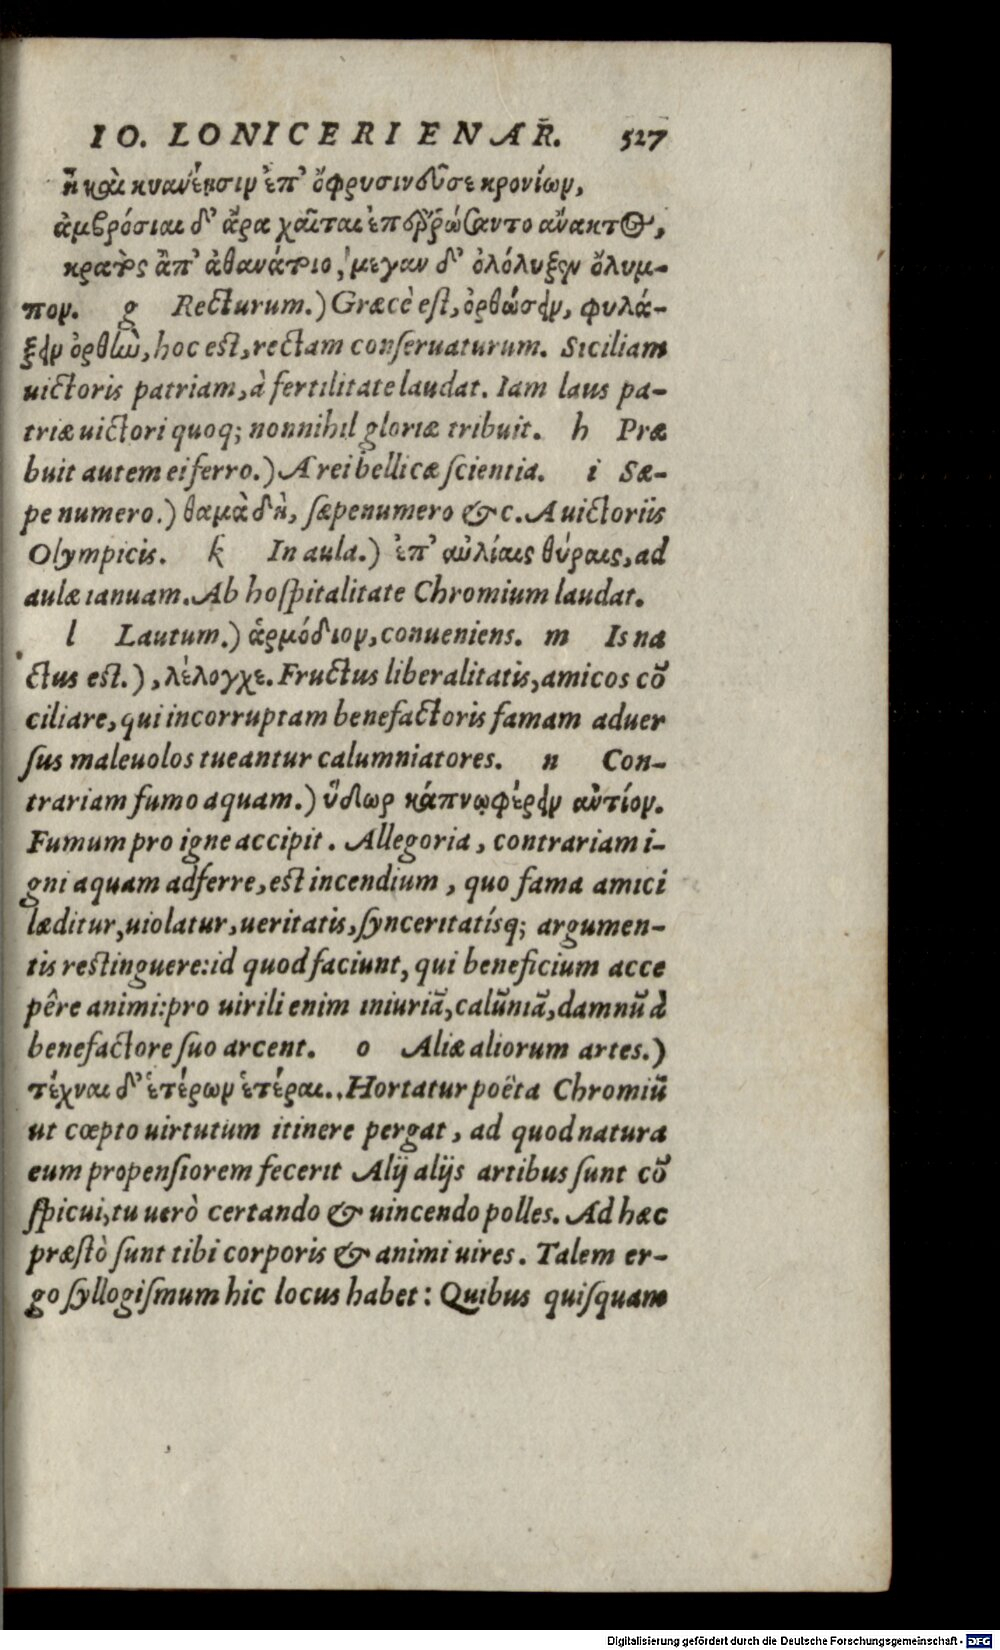 IO. LONICERI ENAR̃. 527
ἦ καὶ κυανέῃσιν ἐπ’ ὀφρύσι νεῦσε κρονίων,
ἀμβρόσιαι δ’ ἄρα χαῖται ἐπερῤώσαντο ἄνακτος,
κρατὸς ἀπ’ ἀθανάτοιο, μεγαν δ’ ὀλόλυξεν ὄλυμ-
πον. g Recturum.) Græcè est, ὀρθώσειν, φυλά-
ξειν ὀρθὴν, hoc est, rectam conseruaturum. Siciliam
uictoris patriam, à fertilitate laudat. Iam laus pa-
triæ uictori quoq; nonnihil gloriæ tribuit. h Præ
buit autem ei ferro.) A rei bellicæ scientia. i Sæ-
pe numero.) θαμὰ δὴ, sæpenumero &c. A uictoriis
Olympicis. k In aula.) ἐπ’ αὐλίαις θύραις, ad
aulæ ianuam. Ab hospitalitate Chromium laudat.
l Lautum.) ἁρμόδιον, conueniens. m Is na
ctus est.), λέλογχε. Fructus liberalitatis, amicos cõ
ciliare, qui incorruptam benefactoris famam aduer
sus maleuolos tueantur calumniatores. n Con-
trariam fumo aquam.) ὕδωρ κάπνῳ φέρειν ἀντίον.
Fumum pro igne accipit. Allegoria, contrariam i-
gni aquam adferre, est incendium, quo fama amici
læditur, uiolatur, ueritatis, synceritatísq; argumen-
tis restinguere: id quod faciunt, qui beneficium acce
pêre animi: pro uirili enim iniuriã, calũniã, damnũ à
benefactore suo arcent. o Aliæ aliorum artes.)
τέχναι δ’ ἑτέρων ἑτέραι.. Hortatur poëta Chromiũ
ut cœpto uirtutum itinere pergat, ad quod natura
eum propensiorem fecerit Alij alijs artibus sunt cõ
spicui, tu uerò certando & uincendo polles. Ad hæc
præstò sunt tibi corporis & animi uires. Talem er-
go syllogismum hic locus habet: Quibus quisquam
Digitalisierung gefördert durch die Deutsche Forschungsgemeinschaft - DFG